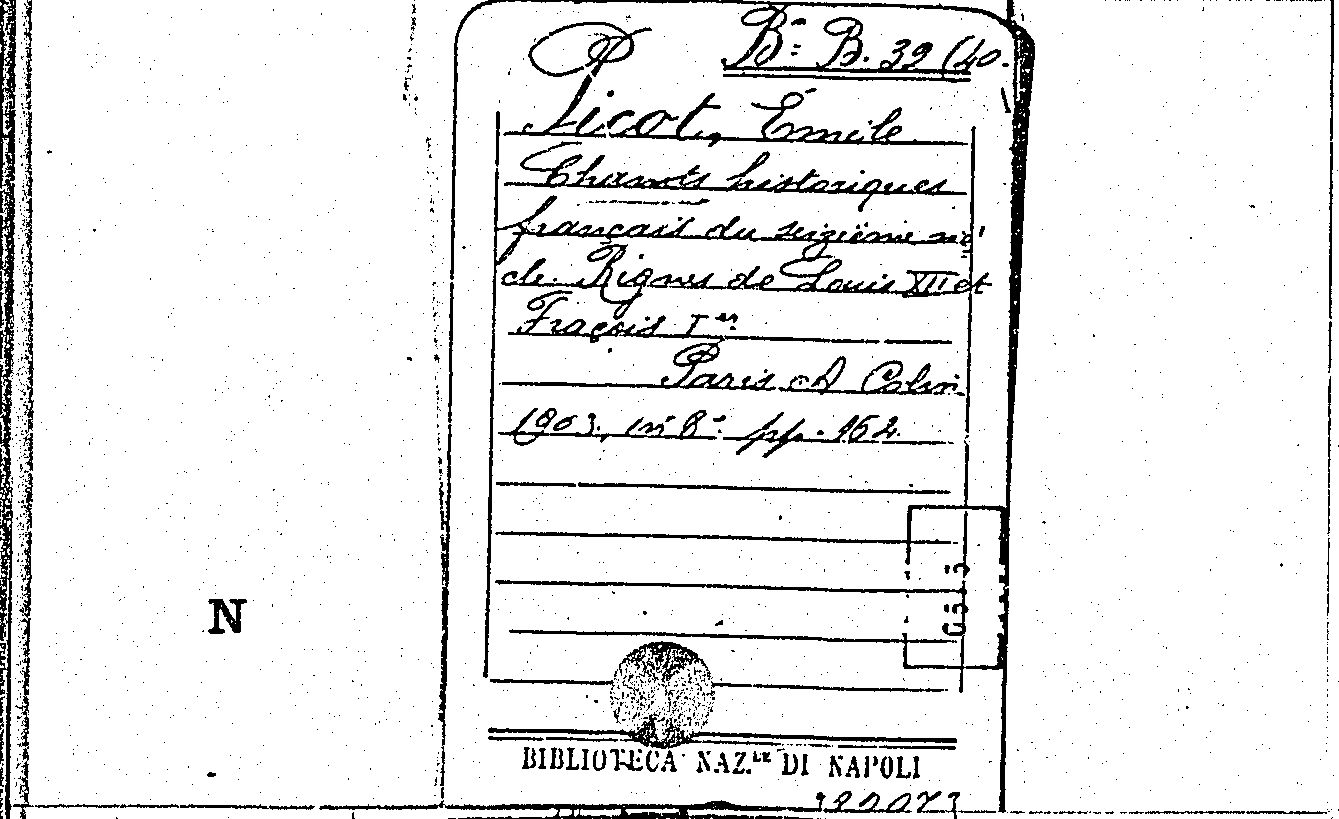 P B.ª B. 32 (40.
Picot, Émile
Chants historiques
français du seizième
de. Rignes de Louis XII et
Fraçois I er
Paris A Colin
1903, in 8.º pp. 162.
N
BIBLIOTECA NAZ.LE DI NAPOLI